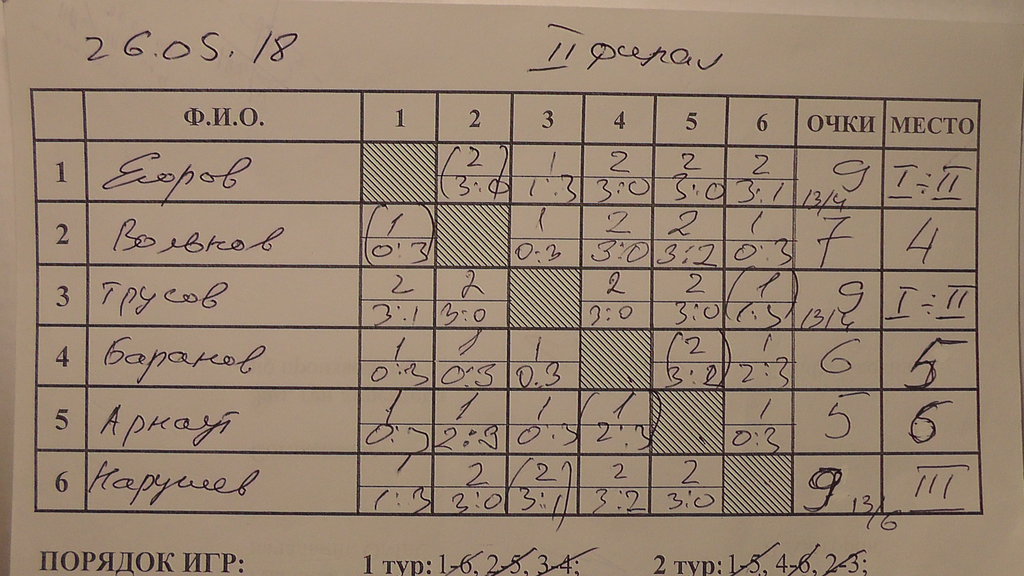 26.05.18 II финал
Ф.И.О. 1 2 3 4 5 6 ОЧКИ МЕСТО
1 Егоров (2 3:0) 1 1:3 2 3:0 2 3:0 2 3:1 9 13/4 I÷II
2 Волынов (1 0:3) 1 0:3 2 3:0 2 3:2 1 0:3 7 4
3 Трусов 2 3:1 2 3:0 2 3:0 2 3:0 (1 1:3) 9 13/4 I÷II
4 Баранов 1 0:3 1 0:3 1 0:3 (2 3:2) 1 2:3 6 5
5 Арнаут 1 0:3 1 2:3 1 0:3 (1 2:3) 1 0:3 5 6
6 Карушев 1 1:3 2 3:0 (2 3:1) 2 3:2 2 3:0 9 13/6 III
ПОРЯДОК ИГР: 1 тур: 1-6, 2-5, 3-4; 2 тур: 1-5, 4-6, 2-3;